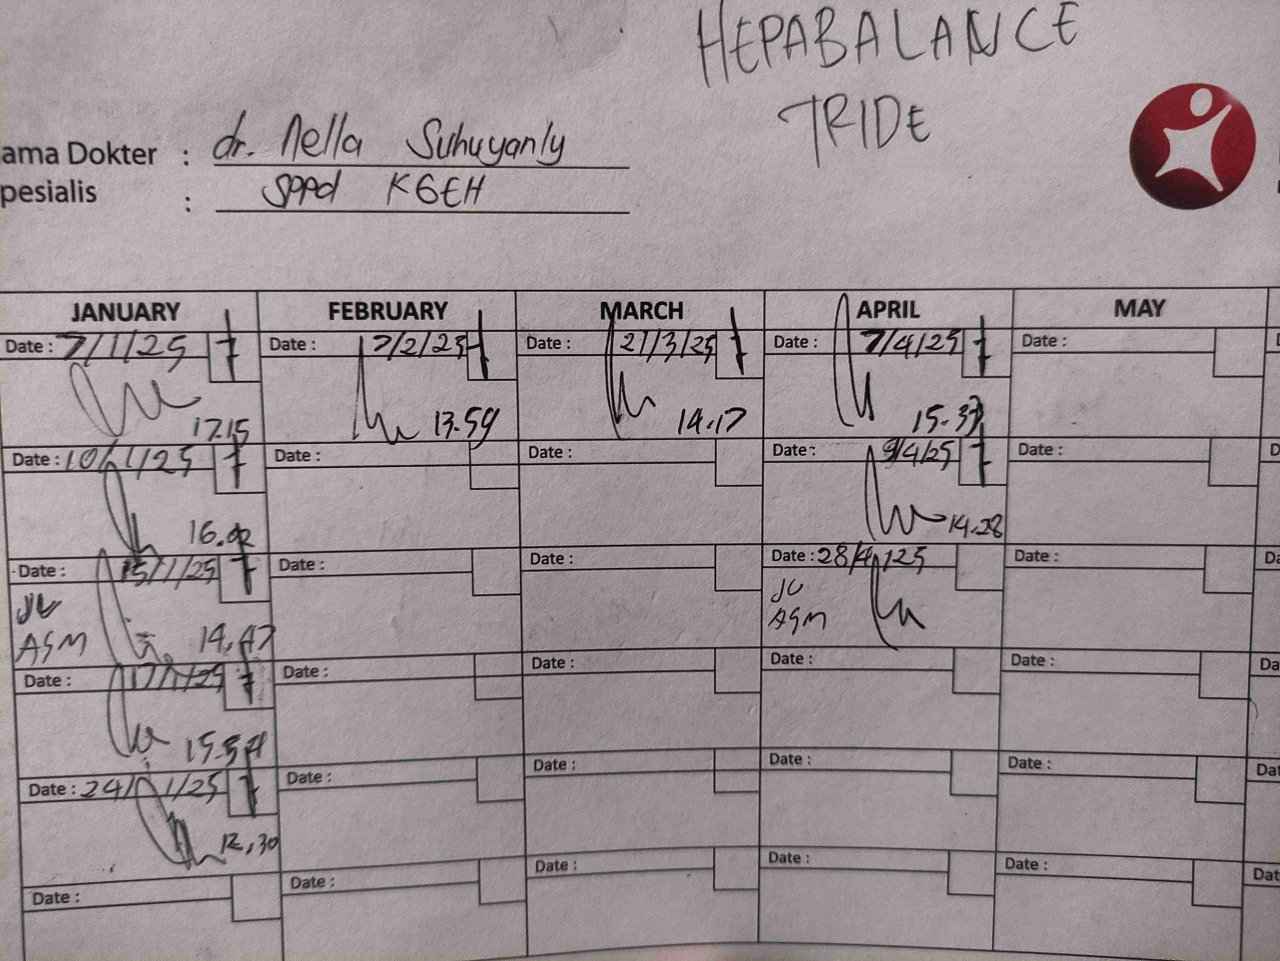 HEPABALANCE
TRIDE
ama Dokter : dr. Nella Suhuyanly
pesialis : SPPD KGEH
JANUARY FEBRUARY MARCH APRIL MAY
Date : 7/1/25 Date : 7/2/25 Date : 21/3/25 Date : 7/4/25 Date :
17.15 13.59 14.17 15.37
Date : 10/1/25 Date : Date : Date : 9/4/25 Date :
16.02 14.28
Date : 15/1/25 Date : Date : Date : 28/4/25 Date :
JV JV
ASM 14.47 ASM
Date : 17/1/25 Date : Date : Date : Date : Da
15.57
Date : 24/1/25 Date : Date : Date : Date : Dat
12,30
Date : Date : Date : Date : Date : Dat